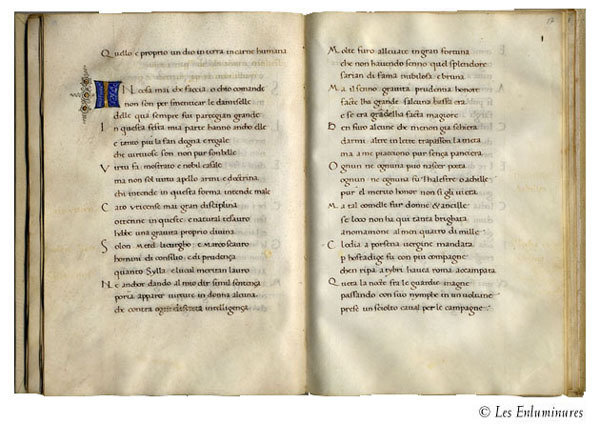 Quello e proprio un dio in terra in carne humana
IN cosa mai che faccia o chio comande
non son per smenticar le damiselle
delle qua sempre fur parte gran grande
In questa festa mia parte hanno anche elle
e tanto piu la fan degna e regale
che virtuose son non pur son belle
Virtu fa mostrato e nobil casale
ma non sol virtu apollo armi e doctrina
chi intende in questa forma intende male
Cato uticense mai gran disciplina
ottenne in queste e natural tesauro
hebbe una gratia propria divina
Solon Metel licurgho e Marco scauro
homini di consilio e di prudenza
quanto Sylla el iual meritan lauro
Ne anchor dando al mio dir simil sentenza
poria apparer virture in donna alcuna
che contra ogni intelligenza
17
Molte furo allevate in gran fortuna
che non havendo senno quel splendore
sarian di fama nubilosa e bruna
Ma il senno gravita prudentia honore
facte lha grande salcuna bassa era
e se era gradelha facta magiore
Ben furo alcune che me non gia schiera
darmi altre in lettre trapasson la meta
ma a me piacciono pur senza pantera
Ognun ne ognuna puo nascer poeta
ognun ne ognuna fu Thalestre o achille
pur el mervo honor non si gli vieta
Ma tal como elle fur donne & ancille
se loco non ha qui tanta brighata
anomamone al men quatro di mille
Cloelia a porsena vergine mandata
p hostadige fu con piu compagne
chen ripa a tybri haueva roma accampata
Questa la nocte fra le guardie magne
passando con suo nymphe in un uolume
prese un sciolto caual per le campagne
© Les Enluminures